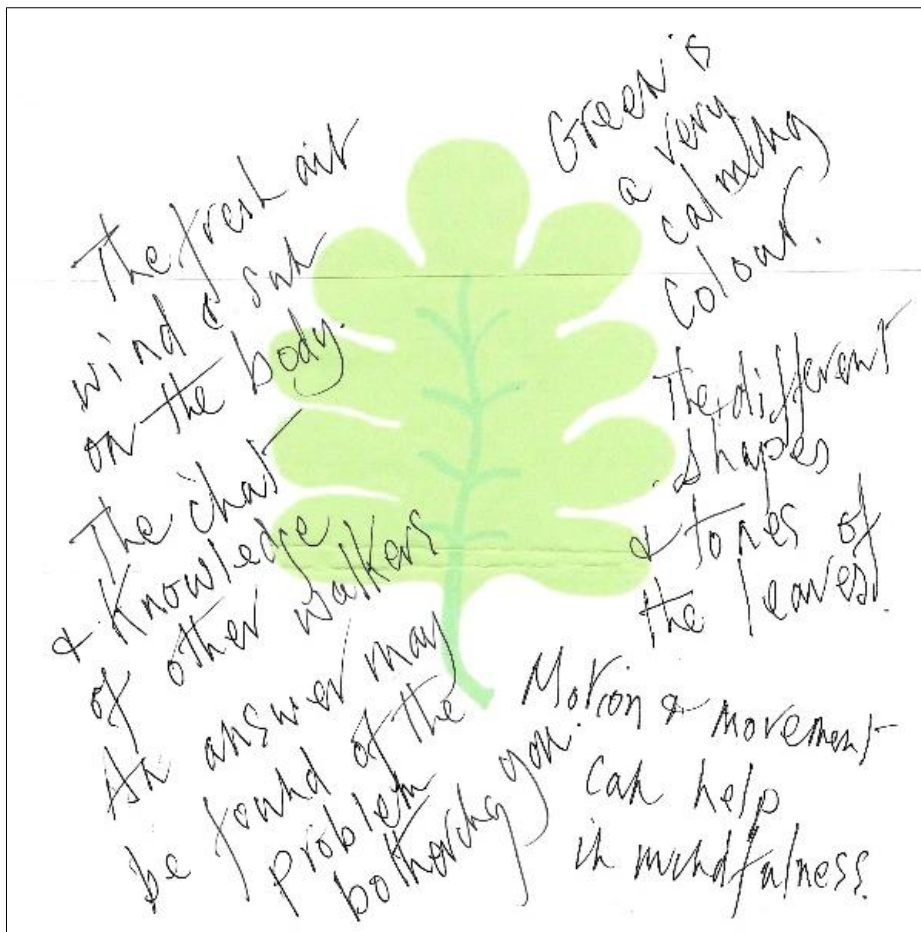 The fresh air
wind & sun
on the body.
The chat
& Knowledge
of other walkers
An answer may
be found of the
problem
bothering you.
Green is
a very
calming
colour.
The different
shapes
& tones of
the leaves.
Motion & movement
can help
in mindfulness.